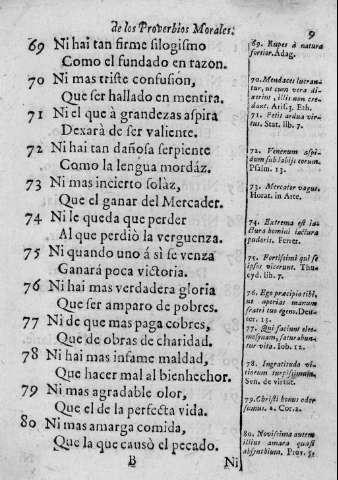 de los Proverbios Morales. 9
69 Ni hai tan firme silogismo
Como el fundado en razon.
70 Ni mas triste confusión,
Que ser hallado en mentira.
71 Ni el que à grandezas aspira
Dexarà de ser valiente.
72 Ni hai tan dañosa serpiente
Como la lengua mordáz.
73 Ni mas incierto solàz,
Que el ganar del Mercader.
74 Ni le queda que perder
Al que perdiò la verguenza.
75 Ni quando uno á sì se venza
Ganará poca victoria.
76 Ni hai mas verdadera gloria
Que ser amparo de pobres.
77 Ni de que mas paga cobres,
Que de obras de charidad.
78 Ni hai mas infame maldad,
Que hacer mal al bienhechor.
79 Ni mas agradable olor,
Que el de la perfecta vida.
80 Ni mas amarga comida,
Que la que causò el pecado.
B Ni
69. Rupes à natura
fortior. Adag.
70. Mendaces lucran-
tur, ut cum vera di-
xerint, illis non cre-
dant. Arist. 3. Eth.
71. Petit ardua vir-
tus. Stat. lib. 7.
72. Venenum aspi-
dum sub labijs eorum.
Psalm. 13.
73. Mercator vagus.
Horat. in Arte.
74. Extrema est ia-
ctura homini iactura
pudoris. Ferret.
75. Fortissimi qui se
ipsos vicerunt. Thu-
cyd. lib. 7.
76. Ego præcipio tibi,
ut aperias manum
fratri tuo egeno. Deu-
ter. 15.
77. Qui faciunt elee-
mosynam, saturabun-
tur vita. Tob. 12.
78. Ingratitudo vi-
tiorum turpissimum.
Sen. de virtut.
79. Christi bonus odor
sumus. 2. Cor. 2.
80. Novissima autem
illius amara quasi
absynthium. Prov. 5.